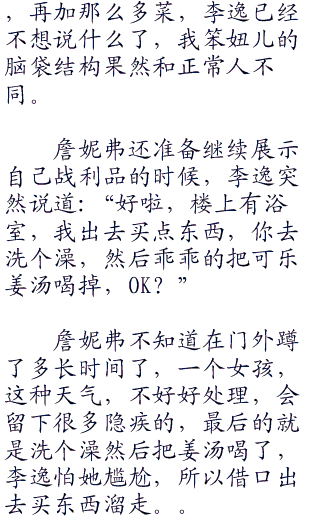 ，再加那么多菜，李逸已经
不想说什么了，我笨妞儿的
脑袋结构果然和正常人不
同。
詹妮弗还准备继续展示
自己战利品的时候，李逸突
然说道：“好啦，楼上有浴
室，我出去买点东西，你去
洗个澡，然后乖乖的把可乐
姜汤喝掉，OK？”
詹妮弗不知道在门外蹲
了多长时间了，一个女孩，
这种天气，不好好处理，会
留下很多隐疾的，最后的就
是洗个澡然后把姜汤喝了，
李逸怕她尴尬，所以借口出
去买东西溜走。。